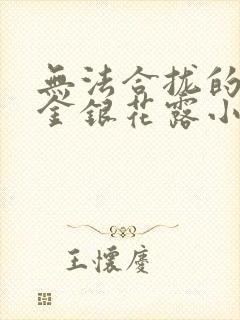 無法合拢的
金銀花露小
王懷慶